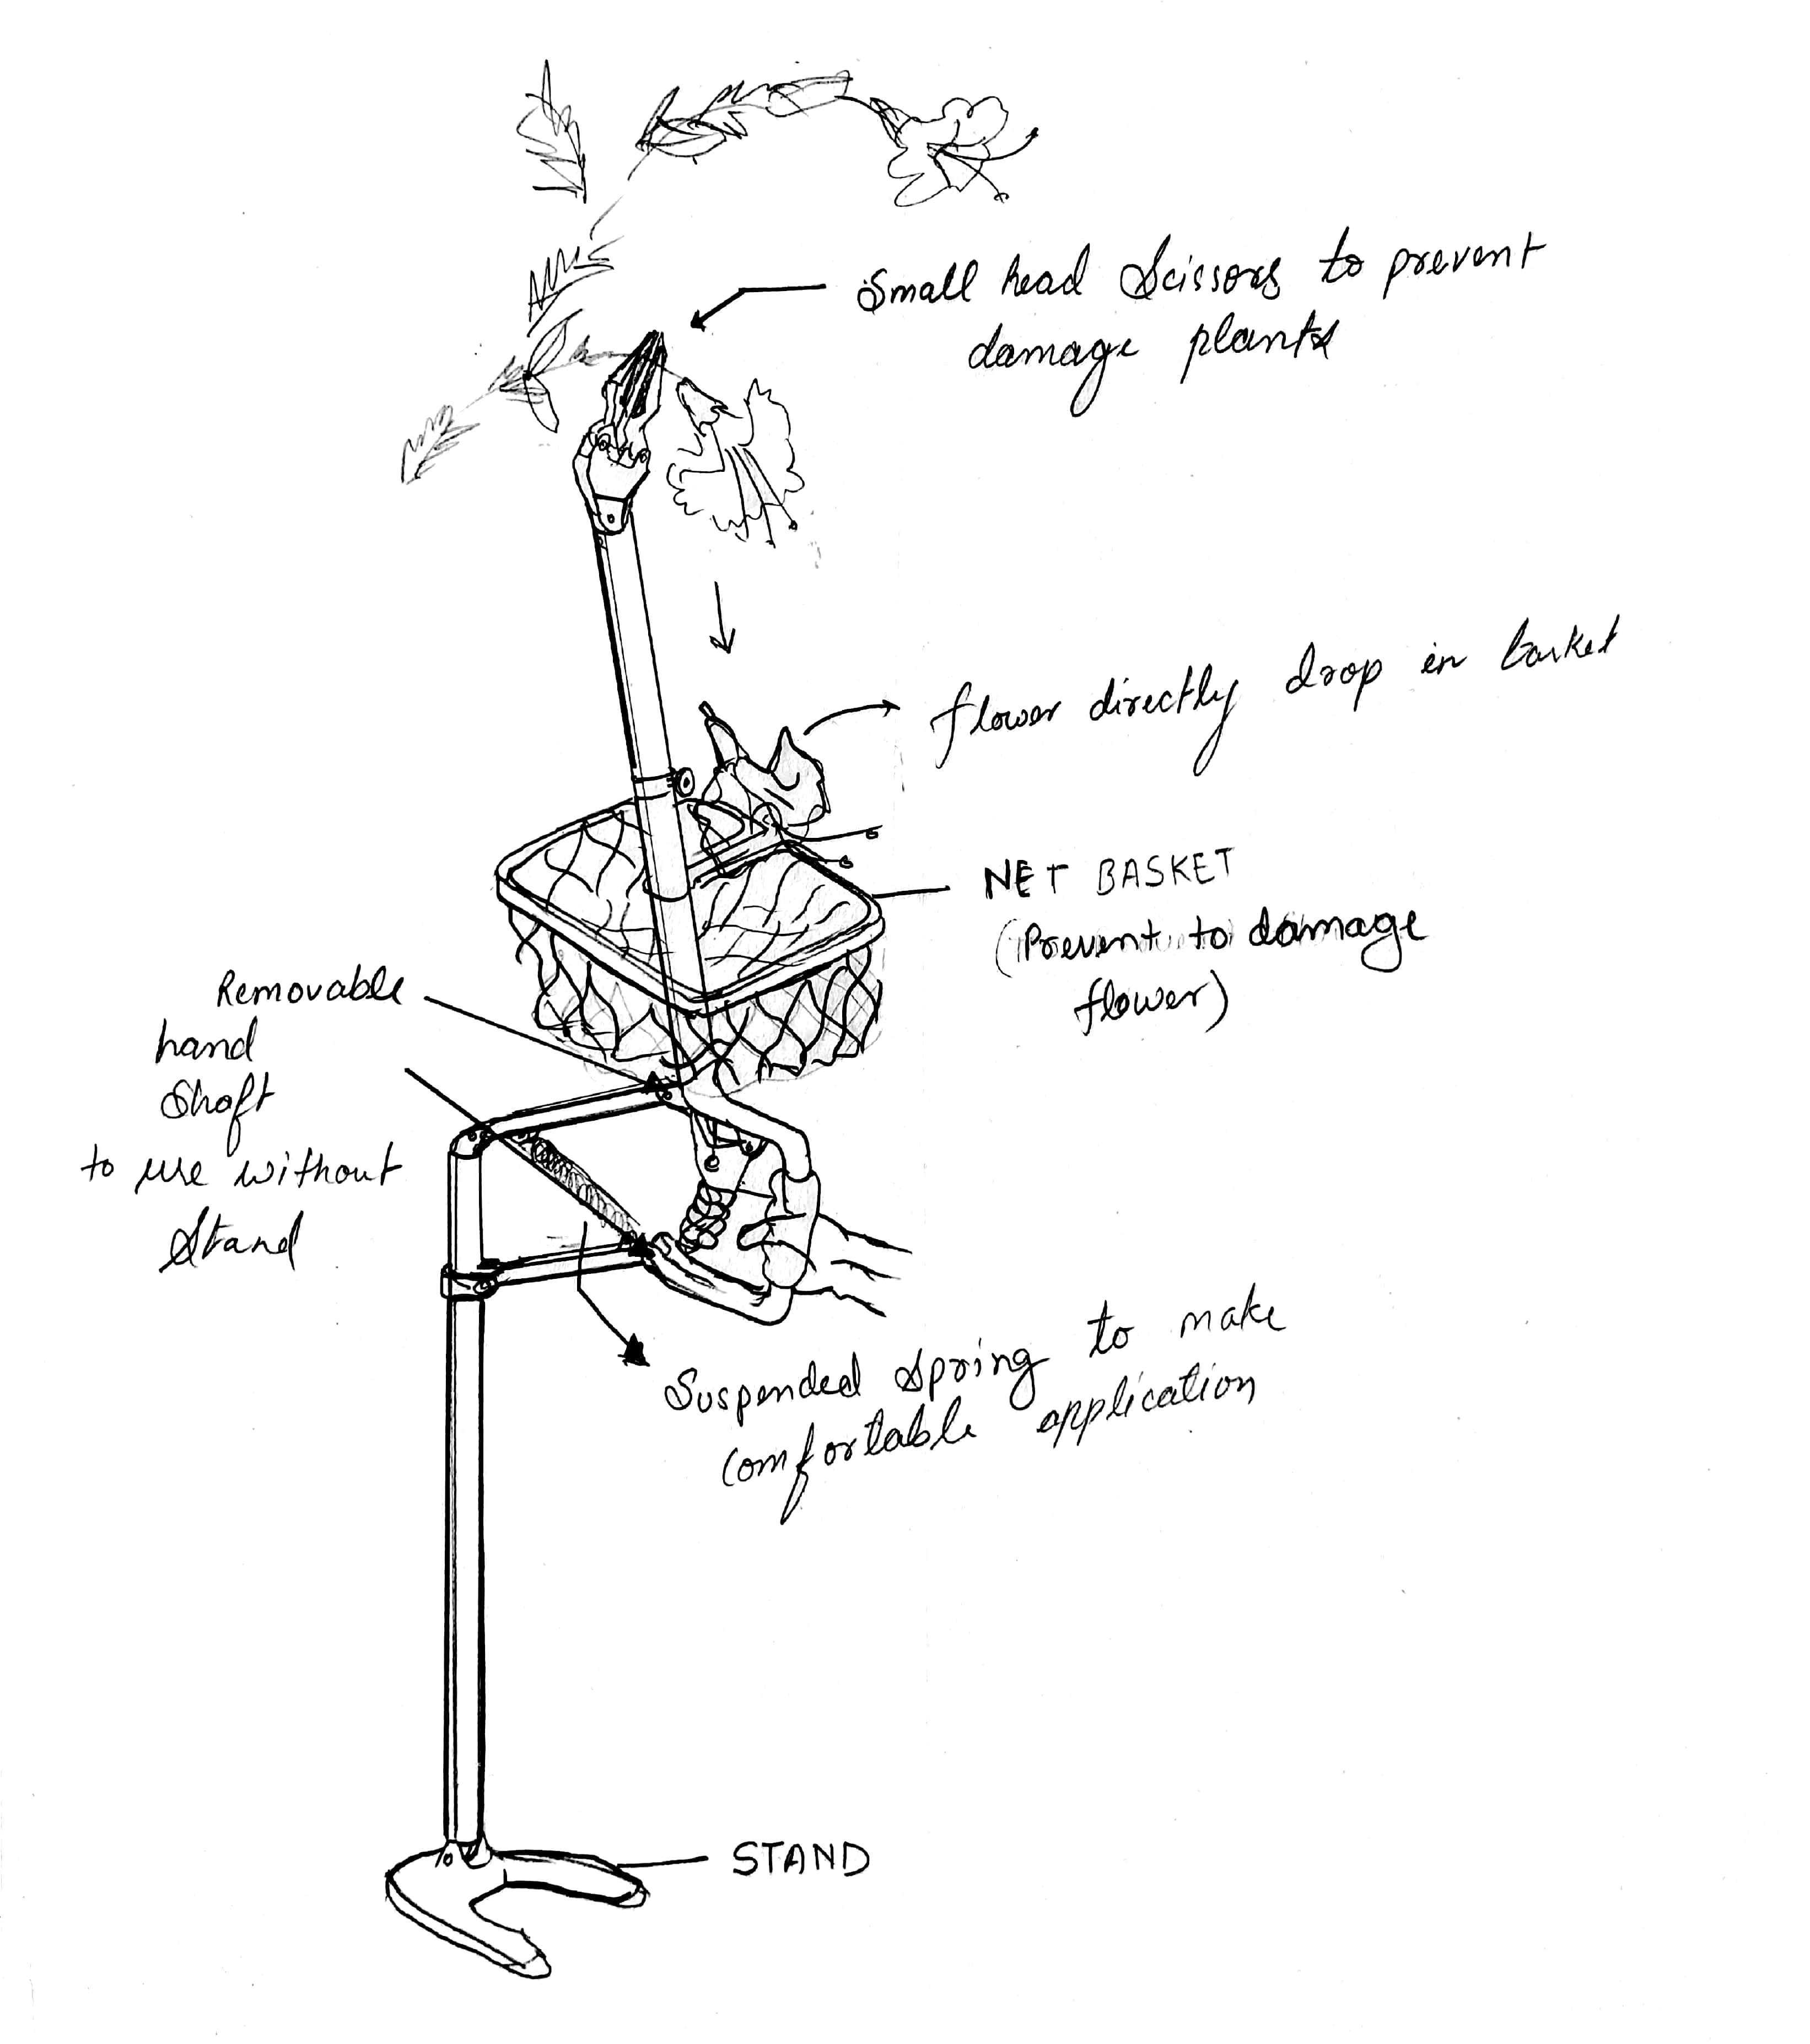 Small head Scissors to prevent
damage plants
flower directly drop in basket
NET BASKET
(Prevent to damage
flower)
Removable
hand
Shaft
to use without
Stand
Suspended Spring to make
Comfortable application
STAND